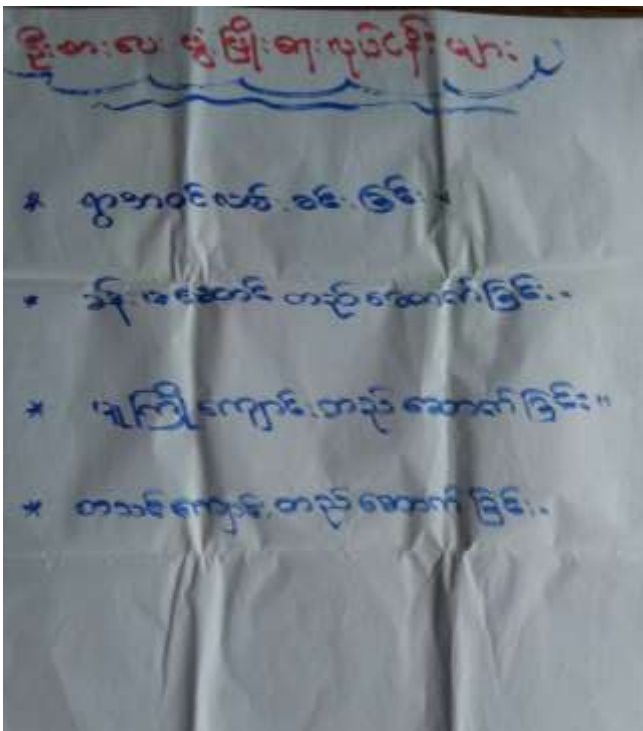 ဦးစားပေး ဖွံ့ဖြိုးရေးလုပ်ငန်းများ
* ရွာအဝင်လမ်းခင်းခြင်း။
* ခန်းမဆောင် တည်ဆောက်ခြင်း။
* မူကြိုကျောင်းတည်ဆောက်ခြင်း။
* တည်ဆောက်ခြင်း။